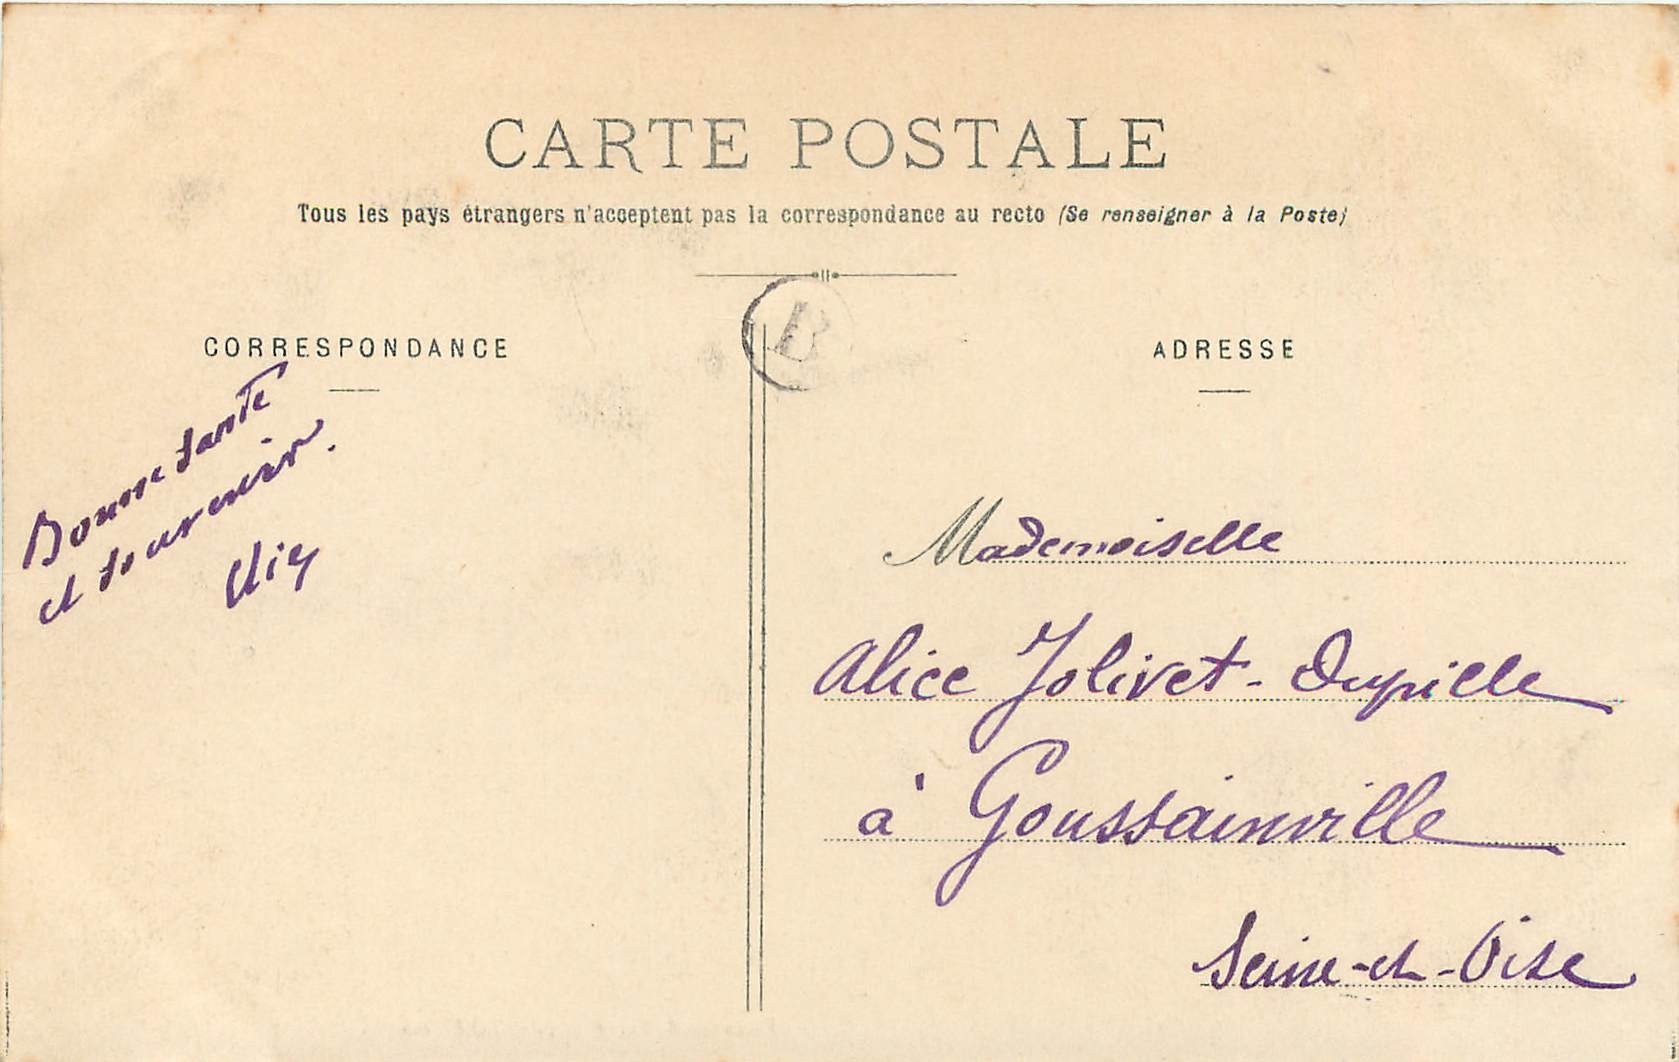 CARTE POSTALE
Tous les pays étrangers n'acceptent pas la correspondance au recto (Se renseigner à la Poste)
B
CORRESPONDANCE
Bonne santé
et souvenir.
ADRESSE
Mademoiselle
Alice Jolivet-Dupille
à Goussainville
Seine-et-Oise